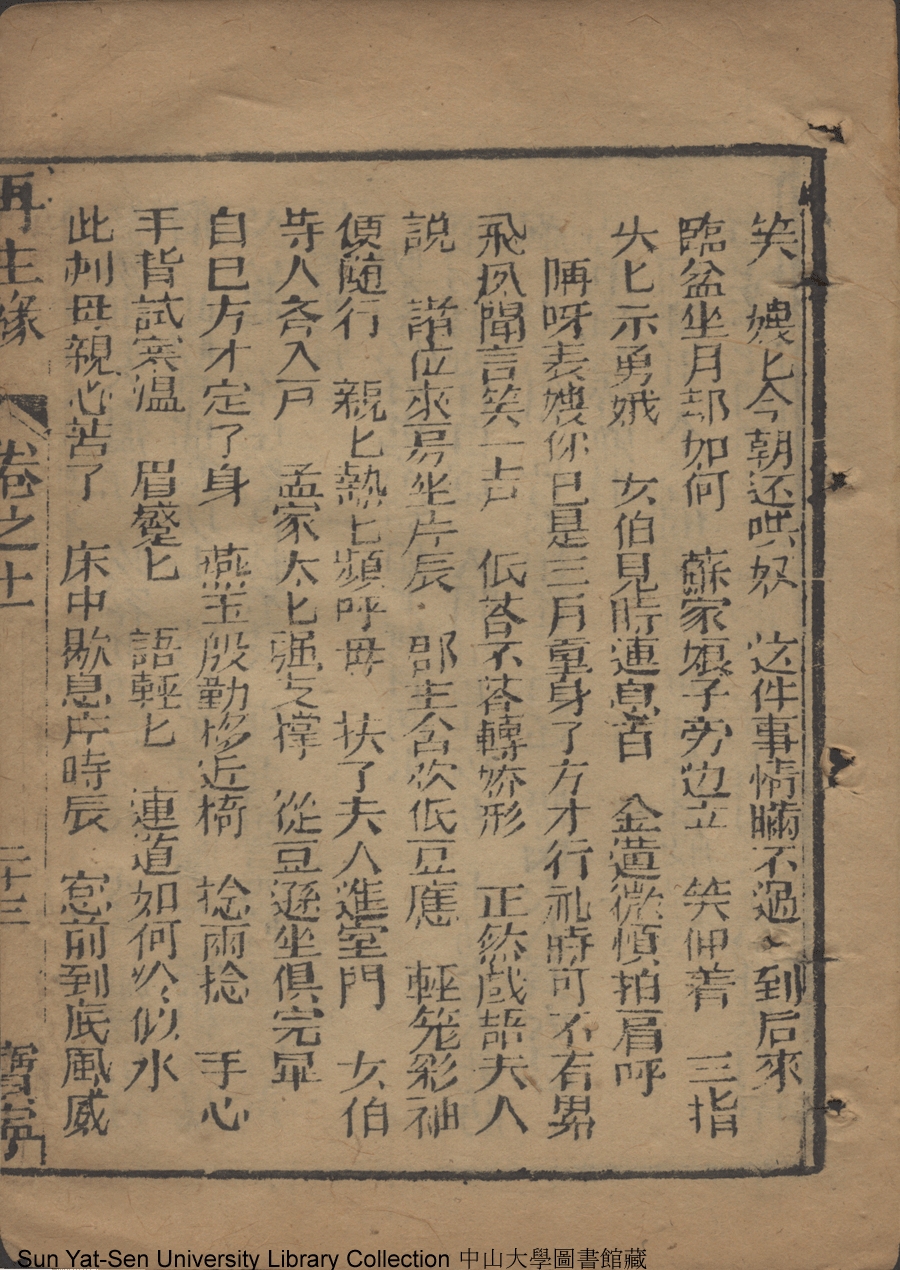 笑　嫂匕今朝还哄奴　这件事情瞞不過　到后來
臨盆坐月却如何　蘇家娘子旁边立　笑伸着　三指
尖匕示勇娥　女伯見時連息首　金蓮微愼拍肩呼
啊呀表嫂你已是三月重身了方才行礼時可不有累
飛鳳聞言笑一声　低荅不荅轉嬌形　正然戲語夫人
説　諸位來房坐片辰　郡主含欢低豆應　輕笼彩袖
便隨行　親匕熱匕頻呼母　扶了夫人進室門　女伯
等人各入戸　孟家太匕强支撑　從豆遜坐俱完畢
自已方才定了身　燕玉殷勤移近椅　捻兩捻　手心
手背試寒温　眉蹙匕　語輕匕　連道如何冷似水
此刻母親心苦了　床中歇息片時辰　窓前到底風威
再生緣　卷之十一　二十三　寳寧
Sun Yat-Sen University Library Collection 中山大學圖書館藏